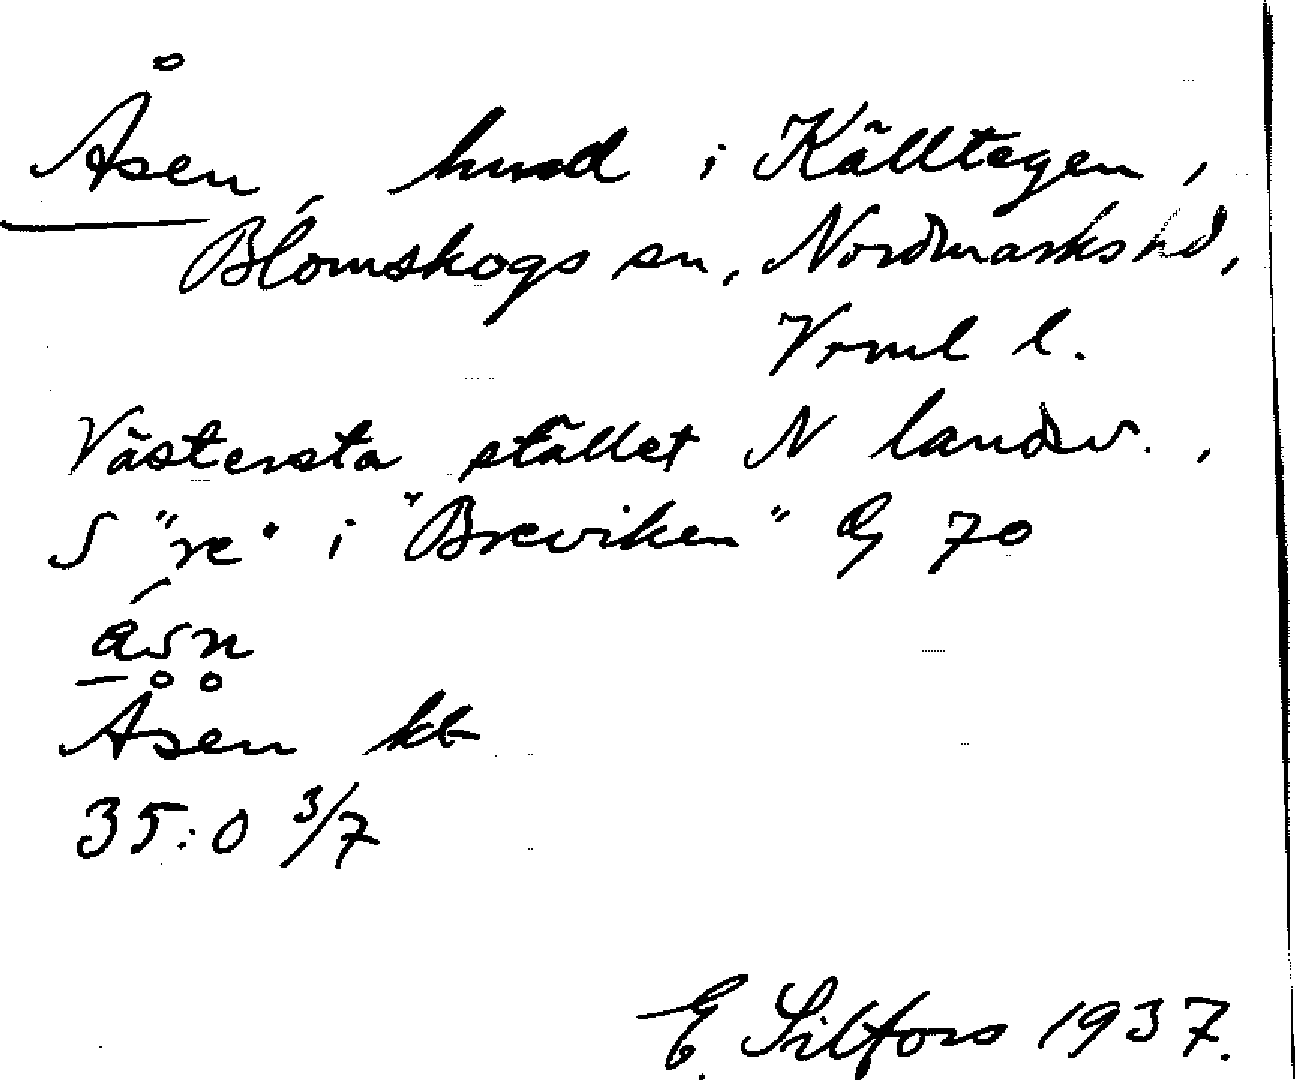 Åsen, hmd i Källtegen,
Blomskogs sn, Nordmarks hd,
Vrml l.
Västersta stället N landsv.,
S "re" i "Breviken" G 70
Åsen kb
35:0 3/7
E. Silfors 1937.